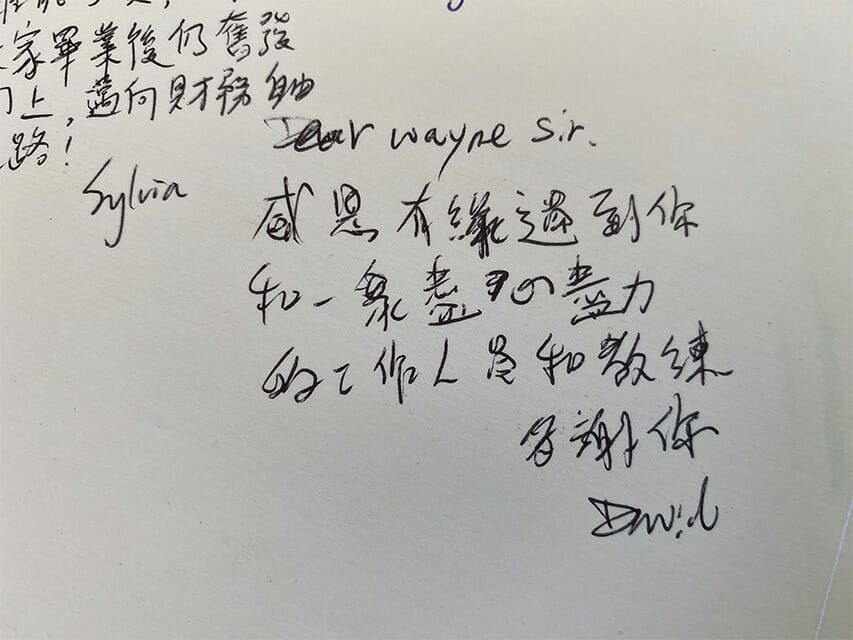 家畢業後仍奮發
上,邁向財務自由
路!
Sylvia
Dear Wayne Sir.
感恩有緣遇到你
和一眾盡心盡力
的工作人員和教練
多謝你
David